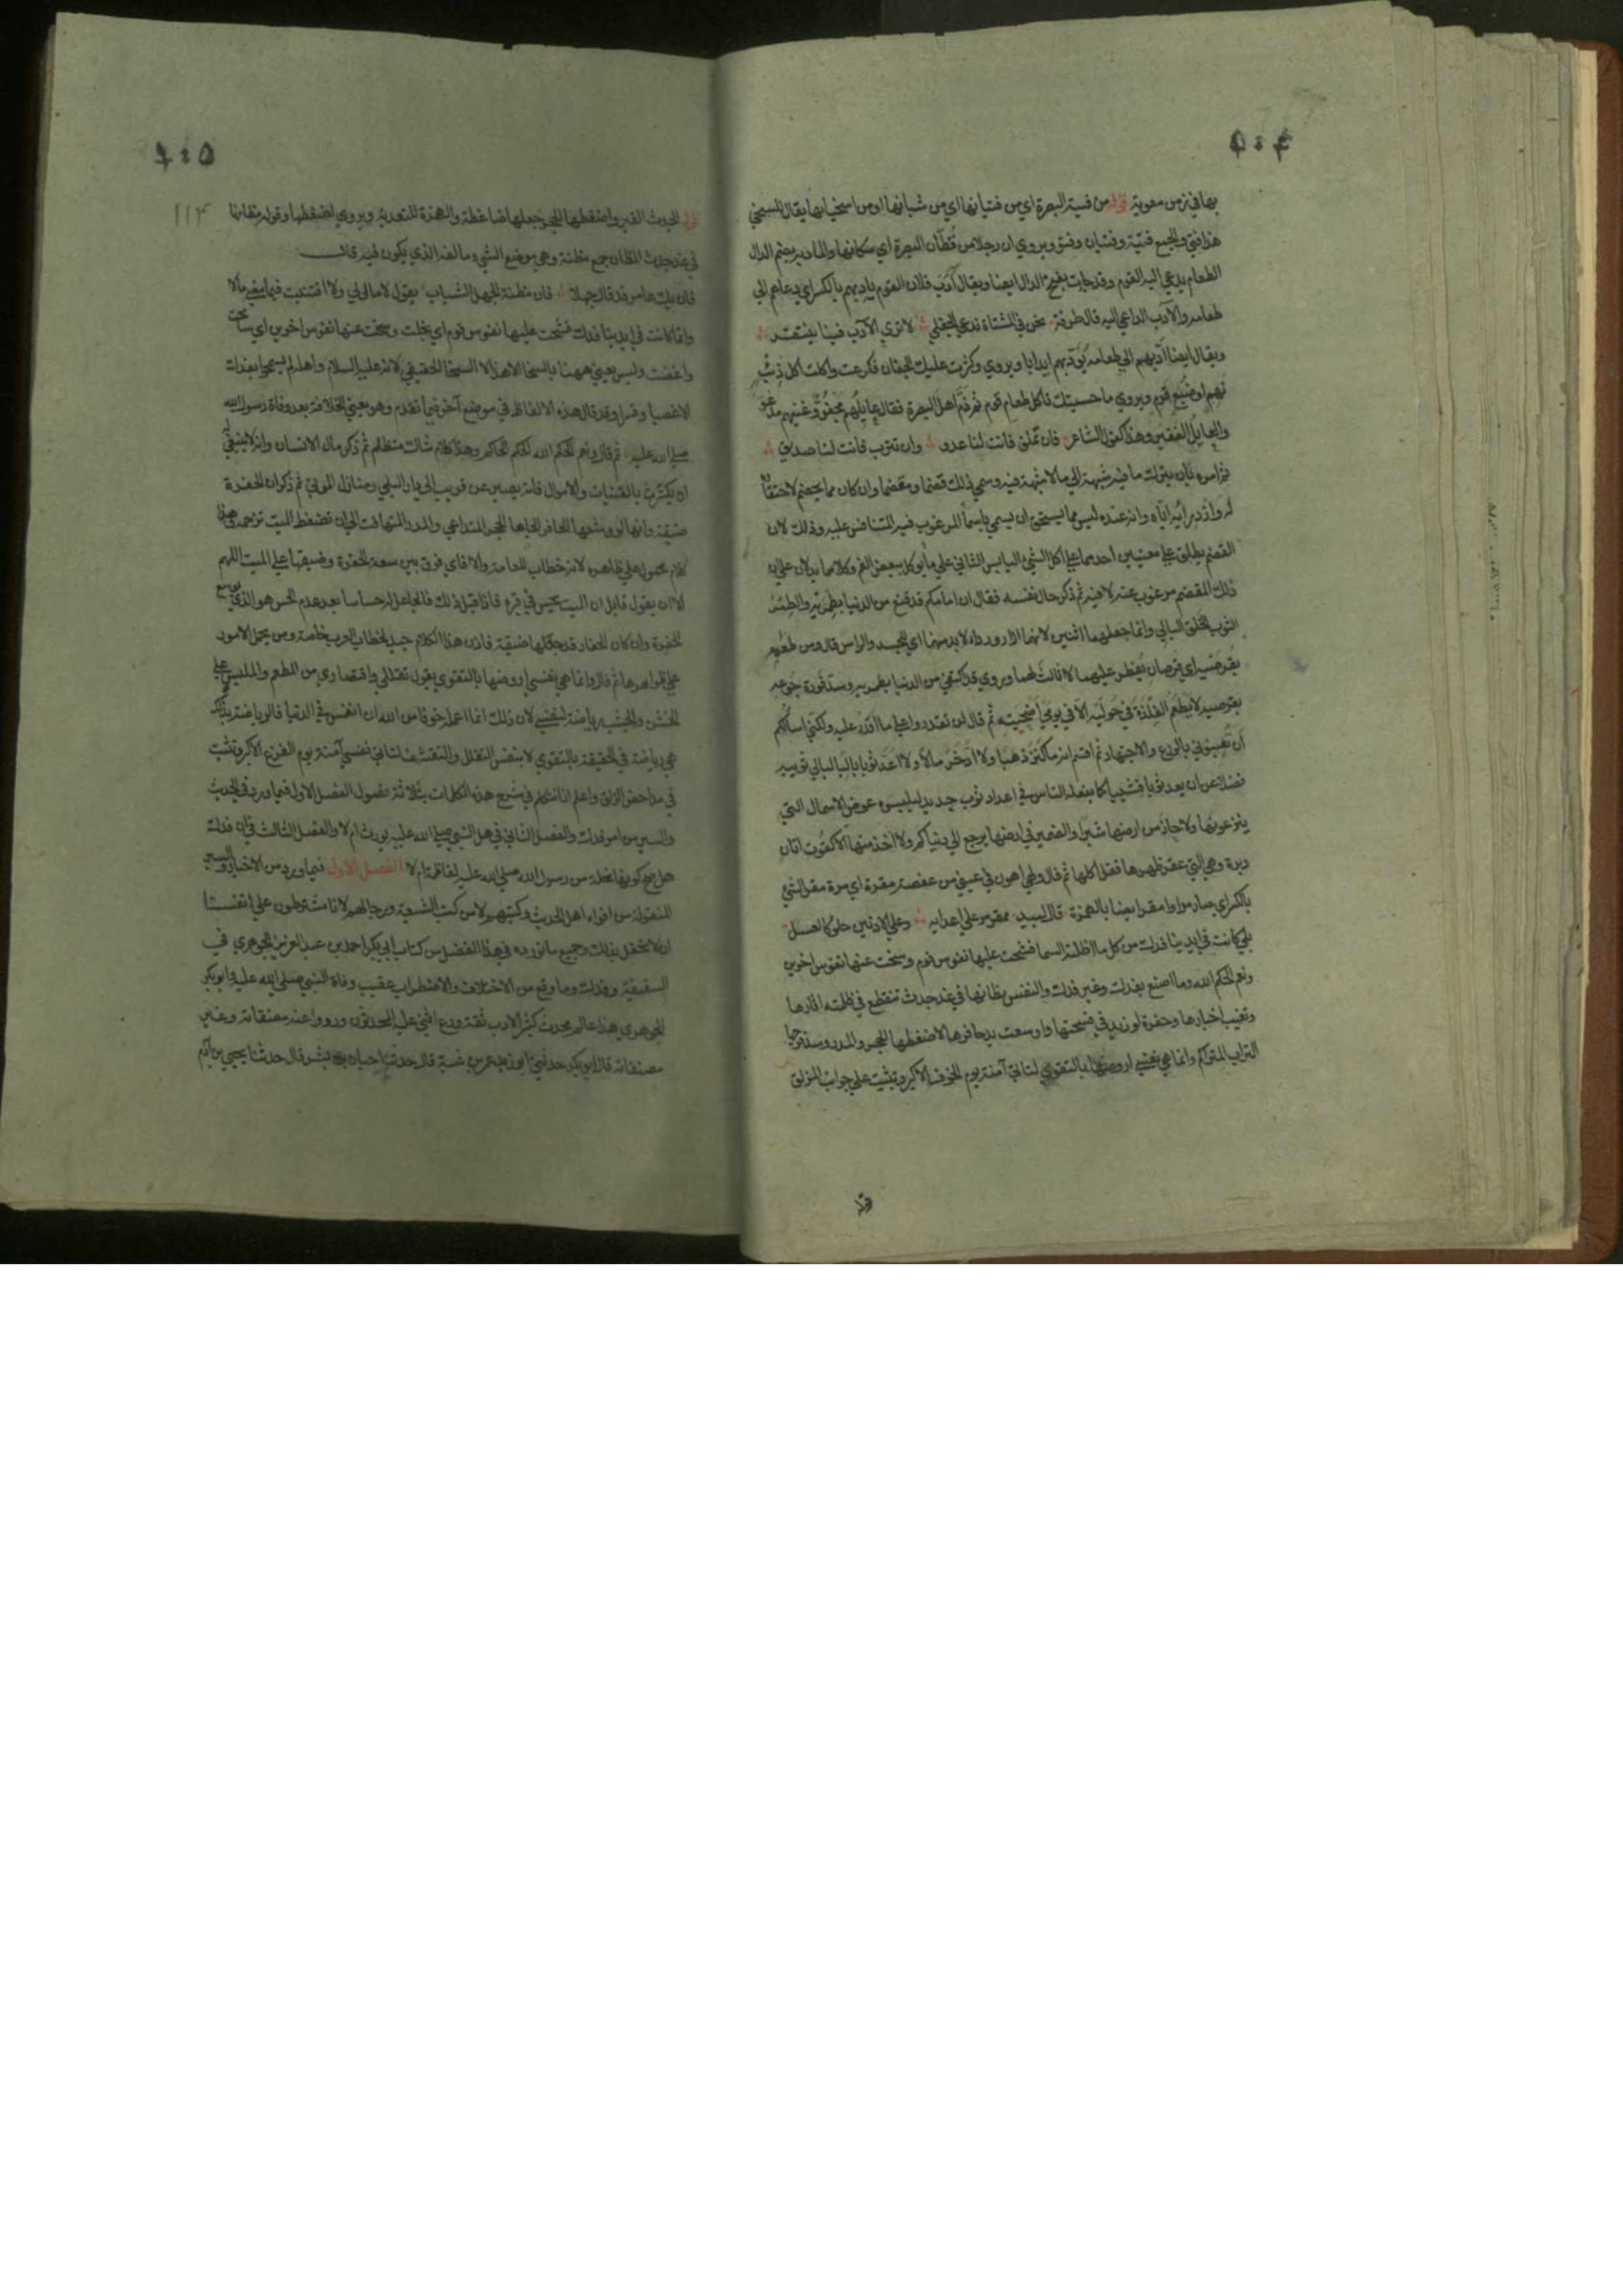 ٤٠٤
بها في زمن معوية قوله من فتية البصرة اي من فتيانها اي من شبانها او من اسخيايها يقال للسخي
هذا فتى والجمع فتية وفتيان وفتو ويروي ان رجلا من قُطّان البصرة اي سكانها والمادبة بضم الدال
الطعام يدعي اليه القوم وقد جاءت بفتح الدال ايضا ويقال أدَبَ فلان القوم يادبهم بالكسر اي دعاهم الي
طعامه والآدب الداعي اليه قال طرفة نحن في المشتاة ندعي الجفلي لا تري الآدب فينا ينتقر
ويقال ايضا آدبهم الي طعامه يُؤدبهم ايدابا ويروي وكثرت عليك الجفان فكرعت واكلت اكل ذئب
نهم او ضبع قرم ويروي ما حسبتك تاكل طعام قوم ثم ذم اهل البصرة فقال عايلُهم مجفوٌّ وغنيهم مدعو
والعايل الفقير وهذا كقول الشاعر فان تملق فانت لنا عدو وان تترب فانت لنا صديق
ثم امره بان يترك ما فيه شبهة الي ما لا شبهة فيه وسمي ذلك قضما ومقضما وان كان مما يخضم لاحتقاره
له وازدرائه اياه وانه عنده ليس مما يستحق ان يسمي باسماء المرغوب فيه المتنافس عليه وذلك لان
القضم يطلق علي معنيين احدهما علي اكل الشيء اليابس الثاني علي ما يوكل ببعض الفم وكلاهما يدلان علي ان
ذلك المقضم مرغوب عنه لا فيه ثم ذكر حال نفسه فقال ان امامكم قد قنع من الدنيا بطمريه والطمر
الثوب الخلق البالي وانما جعلهما اثنين لانهما ازار ورداء لا بد منهما اي للجسد والراس قال ومن طعمه
بقرصيه اي قرصان يفطر عليهما لا ثالث لهما وروي قد اكتفي من الدنيا بطمريه وسد فورة جوعه
بقرصيه لا يطعم الفلذة في حوليه الا في يومي اضحيته ثم قال لن تقدروا علي ما اقدر عليه ولكني اسالكم
أن تعينوني بالورع والاجتهاد ثم اقسم انه ما كنز ذهبا ولا ادخر مالا ولا اعد ثوبا باليا لبالي ثوبيه
فضلا عن ان يعد ثوبا قشيبا كما يفعله الناس في اعداد ثوب جديد ليلبسوه عوض الاسمال التي
ينزعونها ولا حاز من ارضها شبرا والضمير في ارضها يرجع الي دنياكم ولا اخذ منها الا كقوت اتان
دبرة وهي التي عقر ظهرها فقل اكلها ثم قال ولهي اهون في عيني من عفصة مقرة اي مرة مقر الشيء
بالكسر اي صار مرا وامقر ايضا بالهمزة قال لبيد ممقر مر علي اعدايه وعلي الادنين حلو كالعسل
بلي كانت في ايدينا فدك من كل ما اظلته السما فشحت عليها نفوس قوم وسخت عنها نفوس اخرين
ونعم الحكم الله وما اصنع بفدك وغير فدك والنفس مظانها في غد جدث تنقطع في ظلمته اثارها
وتغيب اخبارها وحفرة لو زيد في فسحتها واوسعت يدا حافرها لاضغطها الحجر والمدر وسد فرجها
التراب المتراكم وانما هي نفسي اروضها بالتقوي لتاتي آمنة يوم الخوف الاكبر وتثبت علي جوانب المزلق
٤٠٥
١١٣
قوله الجدث القبر واضغطها الحجر جعلها ضاغطة والهمزة للتعدية ويروي لضغطها وقوله مظانها
في غد جدث المظان جمع مظنة وهي موضع الشي ومالفه الذي يكون فيه قال
فان يك عامر قد قال جهلا فان مظنة الجهل الشباب يقول لا مال لي ولا اقتنيت فيما مضي مالا
وانما كانت في ايدينا فدك فشحت عليها نفوس قوم اي بخلت وسخت عنها نفوس اخرين اي سامحت
واغضت وليس يعني ههنا بالسخا الا هذا لا السخا الحقيقي لانه عليه السلام واهله لم يسمحوا بفدك
الا غصبا وقسرا وقد قال هذه الالفاظ في موضع آخر فيما تقدم وهو يعني الخلافة بعد وفاة رسول الله
صلي الله عليه ثم قال ونعم الحكم الله الحكم الحاكم وهذا كلام شاك متظلم ثم ذكر مال الانسان وانه لا ينبغي له
ان يكترث بالقينات والاموال فانه يصير عن قريب الي دار البلي ومنازل الموتي ثم ذكر ان الحفرة
ضيقة وانها لو وسعها الحافر لالجاها الحجر المتداعي والمدر المتهافت الي ان تضغط الميت تزحمه وهذا
كلام محمول علي ظاهره لانه خطاب للعامة والا فاي فرق بين سعة الحفرة وضيقها علي الميت اللهم
الا ان يقول قايل ان الميت يحس في قبره فاذا قيل ذلك فالجاعل له حساسا بعد عدم الحس هو الذي يوسع
الحفرة وان كان الحفار قد جعلها ضيقة فاذن هذا الكلام جيد لخطاب العرب خاصة ومن يحمل الامور
علي ظواهرها ثم قال وانما هي نفسي اروضها بالتقوي يقول تقللي واقتصاري من المطعم والملبس علي
الخشن والجشب رياضة لنفسي لان ذلك انما اعمله خوفا من الله ان انغمس في الدنيا فالرياضة بذلك
هي رياضة في الحقيقة بالتقوي لا بنفس التقلل والتقشف لتاتي نفسي آمنة يوم الفزع الاكبر وتثبت
في مداحض الزلق واعلم انا نتكلم في شرح هذه الكلمات بثلاثة فصول الفصل الاول فيما ورد في الحديث
والسير من امر فدك والفصل الثاني في هل النبي صلي الله عليه يورث ام لا والفصل الثالث في ان فدك
هل صح كونها نحلة من رسول الله صلي الله عليه لفاطمة ام لا الفصل الاول فيما ورد من الاخبار والسير
المنقولة من افواه اهل الحديث وكتبهم لا من كتب الشيعة ورجالهم لانا مشترطون علي انفسنا
ان لا نحفل بذلك وجميع ما نورده في هذا الفصل من كتاب ابي بكر احمد بن عبد العزيز الجوهري في
السقيفة وفدك وما وقع من الاختلاف والاضطراب عقيب وفاة النبي صلي الله عليه وابو بكر
الجوهري هذا عالم محدث كثير الادب ثقة ورع اثني عليه المحدثون ورووا عنه مصنفاته وغير
مصنفاته قال ابو بكر حدثني ابو زيد عمر بن شبة قال حدثنا حيان بن بشر قال حدثنا يحيي بن آدم